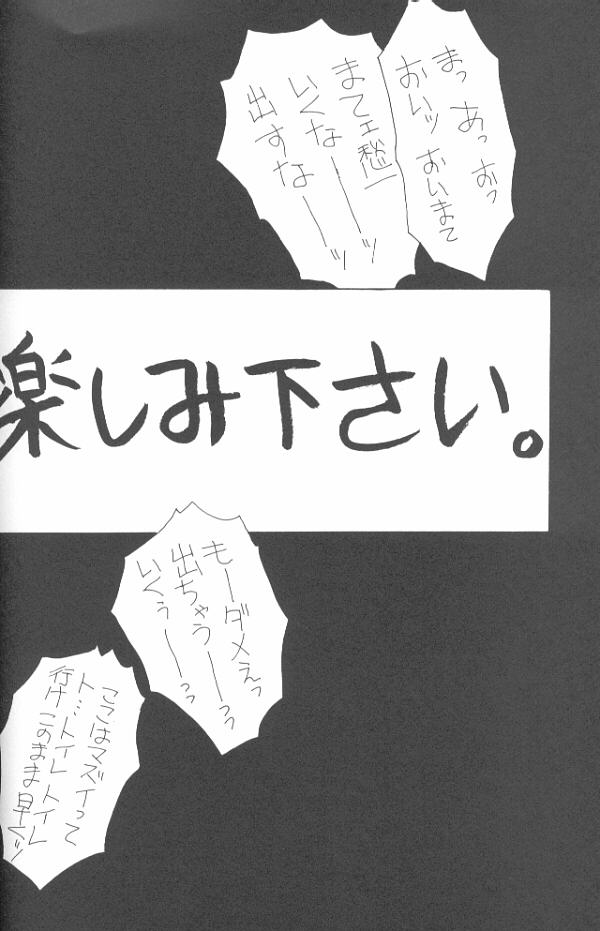 まっ あっ おっ
おいッ おいまて
まてェ愁一
いくなーーッ
出すなーーッ
楽しみ下さい。
もーダメえっ
出ちゃうーーっっ
いくぅーーっっ
ここはマズイって
ト…トイレ トイレ
行け このまま 早くッ